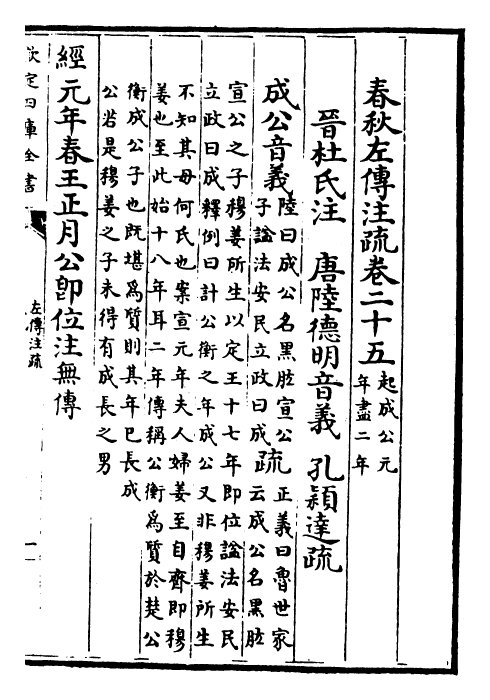 春秋左傳注疏卷二十五
起成公元
年盡二年
晉杜氏注　唐陸德明音義　孔穎達疏
成公音義
陸曰成公名黑肱宣公
子諡法安民立政曰成
疏
正義曰魯世家
云成公名黑肱
宣公之子穆姜所生以定王十七年即位諡法安民
立政曰成釋例曰計公衡之年成公又非穆姜所生
不知其母何氏也案宣元年夫人婦姜至自齊即穆
姜也至此始十八年耳二年傳稱公衡爲質於楚公
衡成公子也既堪爲質則其年已長成
公若是穆姜之子未得有成長之男
經元年春王正月公即位注無傳
欽定四庫全書
左傳注疏
一